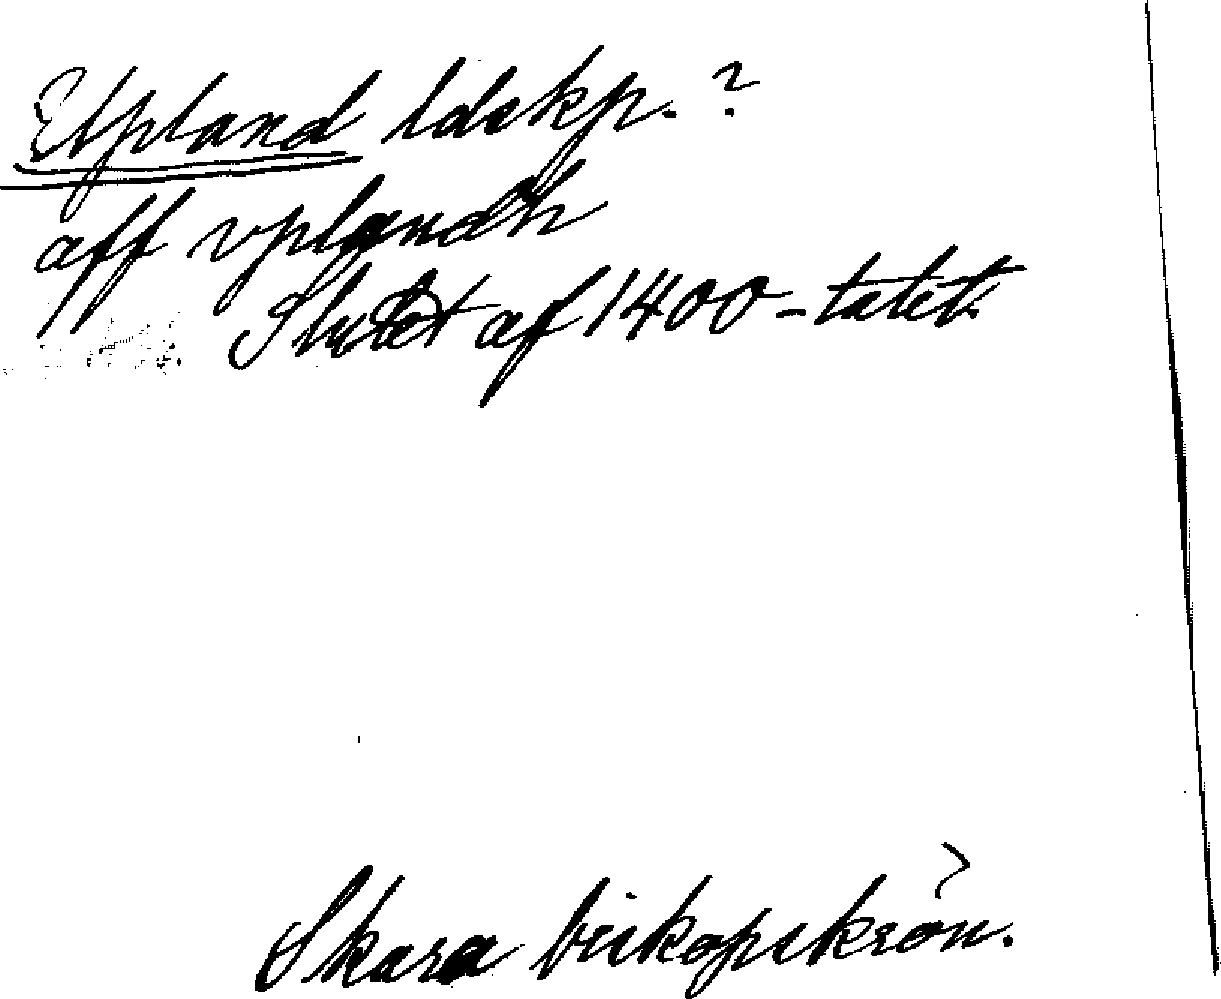 Upland ldskp. ?
aff vplandh
Slutet af 1400-talet.
Skara biskopskrön.